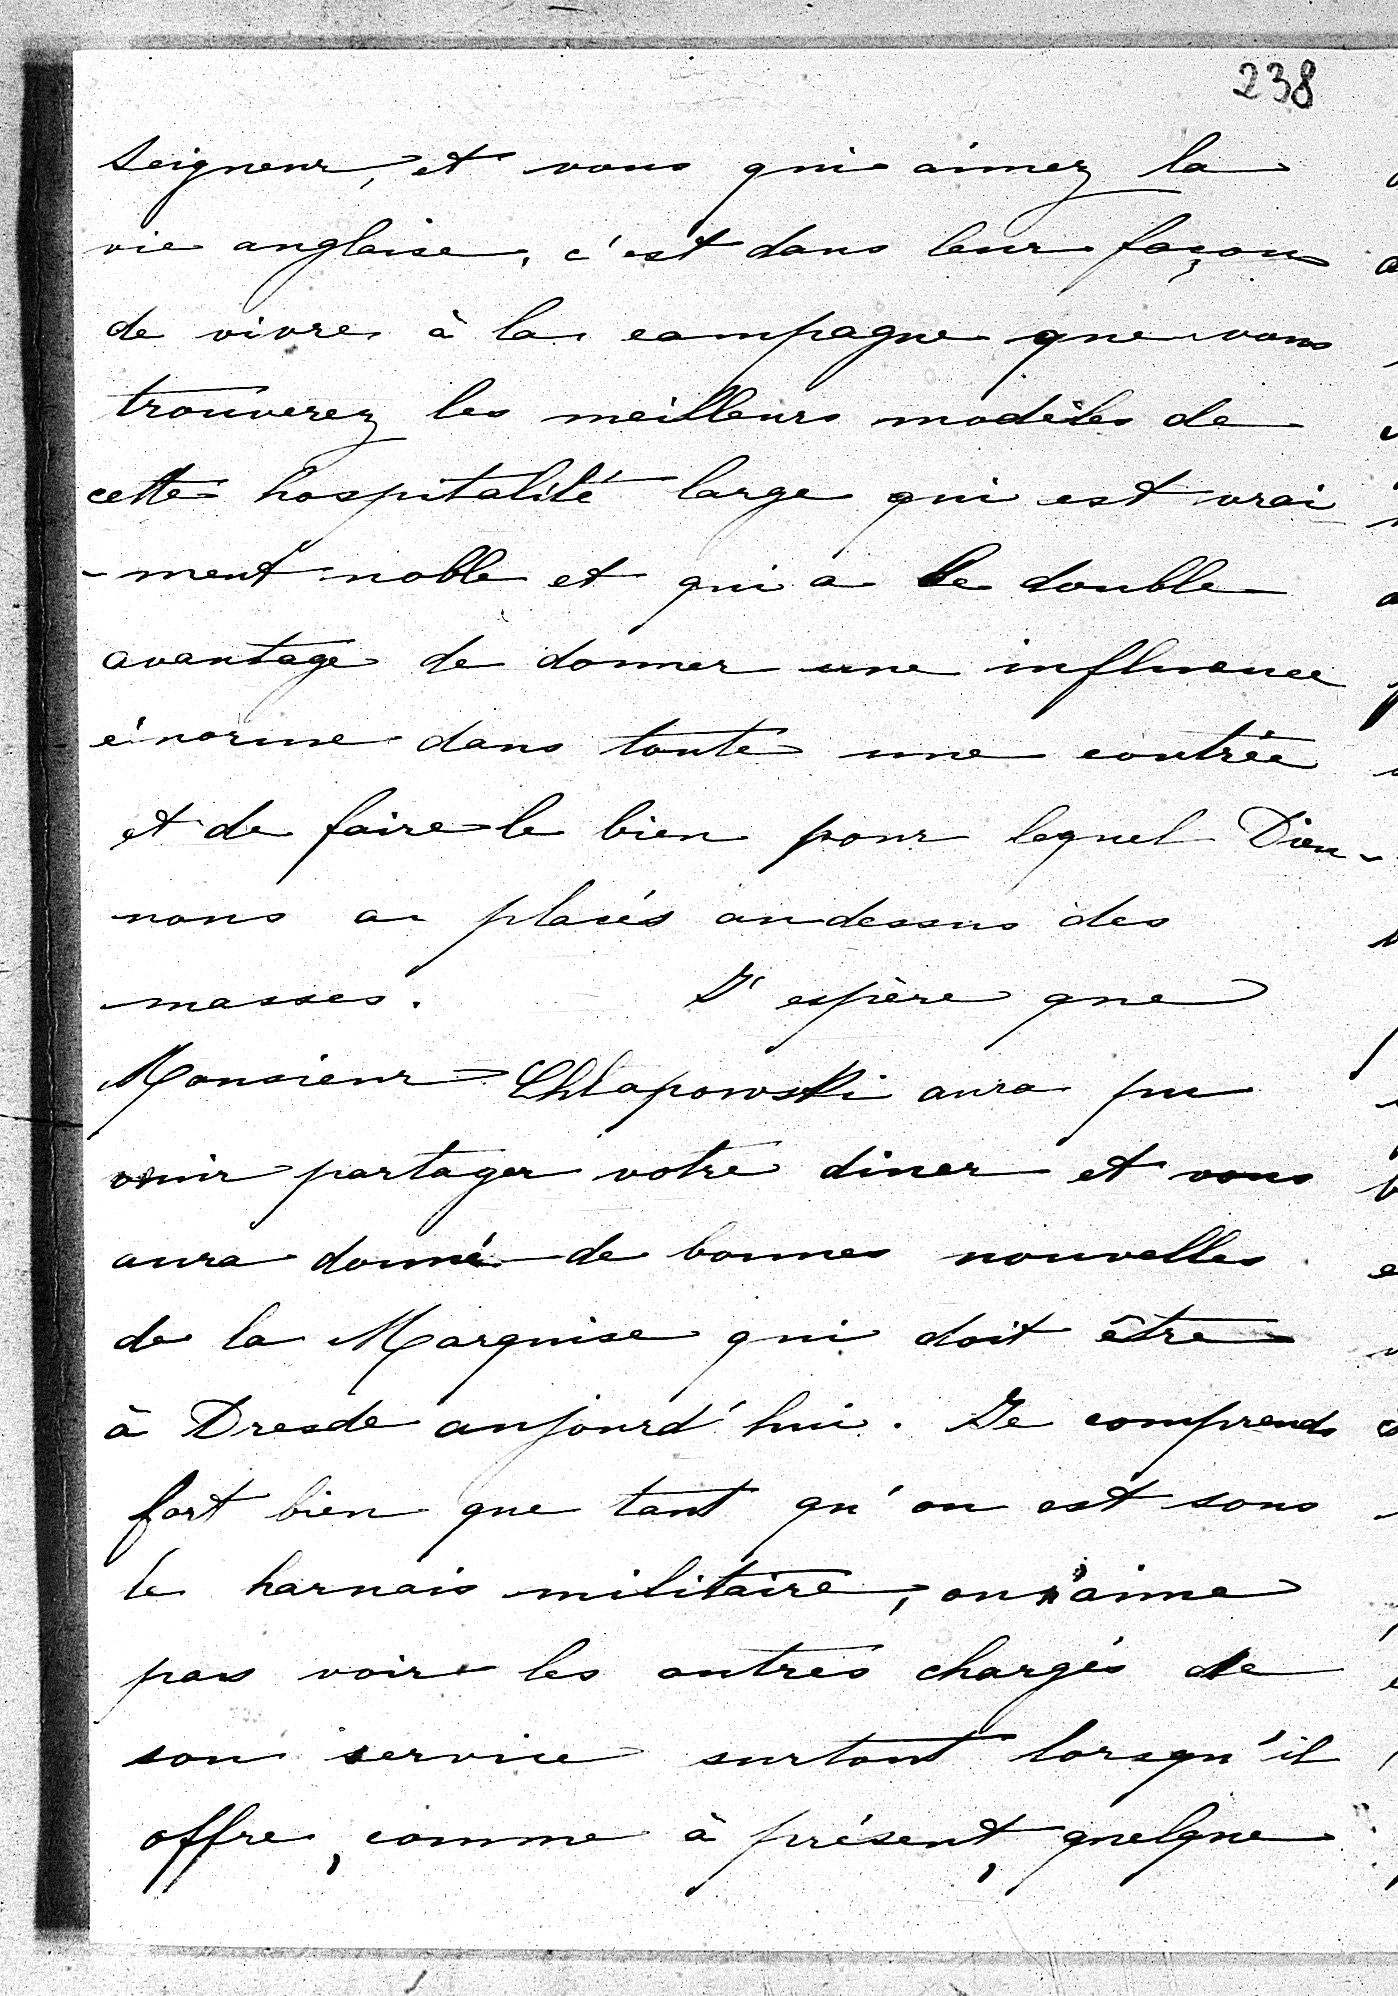 238
Seigneur, et vous qui aimez la
vie anglaise, c'est dans leur façon
de vivre à la campagne que vous
trouverez les meilleurs modèles de
cette hospitalité large qui est vrai
-ment noble et qui a le double
avantage de donner une influence
énorme dans toute une contrée
et de faire le bien pour lequel Dieu
nous a placés audessus des
masses. J'espère que
Monsieur Chlapowski aura pu
venir partager votre diner et vous
aura donné de bonnes nouvelles
de la Marquise qui doit être
à Dresde aujourd'hui. Je comprends
fort bien que tant qu'on est sous
le harnais militaire, on n'aime
pas voir les autres chargés de
son service surtout lorsqu'il
offre, comme à présent, quelque